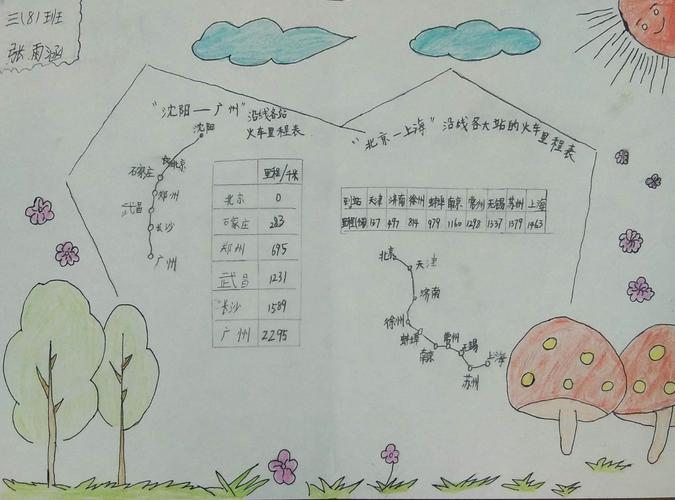 三(8)班
张雨涵
"沈阳—广州"沿线各站
火车里程表
沈阳
北京
石家庄
郑州
武昌
长沙
广州
里程/千米
北京 0
石家庄 283
郑州 695
武昌 1231
长沙 1589
广州 2295
"北京—上海"沿线各大站的火车
里程表
到站 天津 济南 徐州 蚌埠 南京 常州 无锡 苏州 上海
137 497 814 979 1160 1298 1337 1379 1463
北京
天津
济南
徐州
蚌埠
南京
常州
无锡
苏州
上海